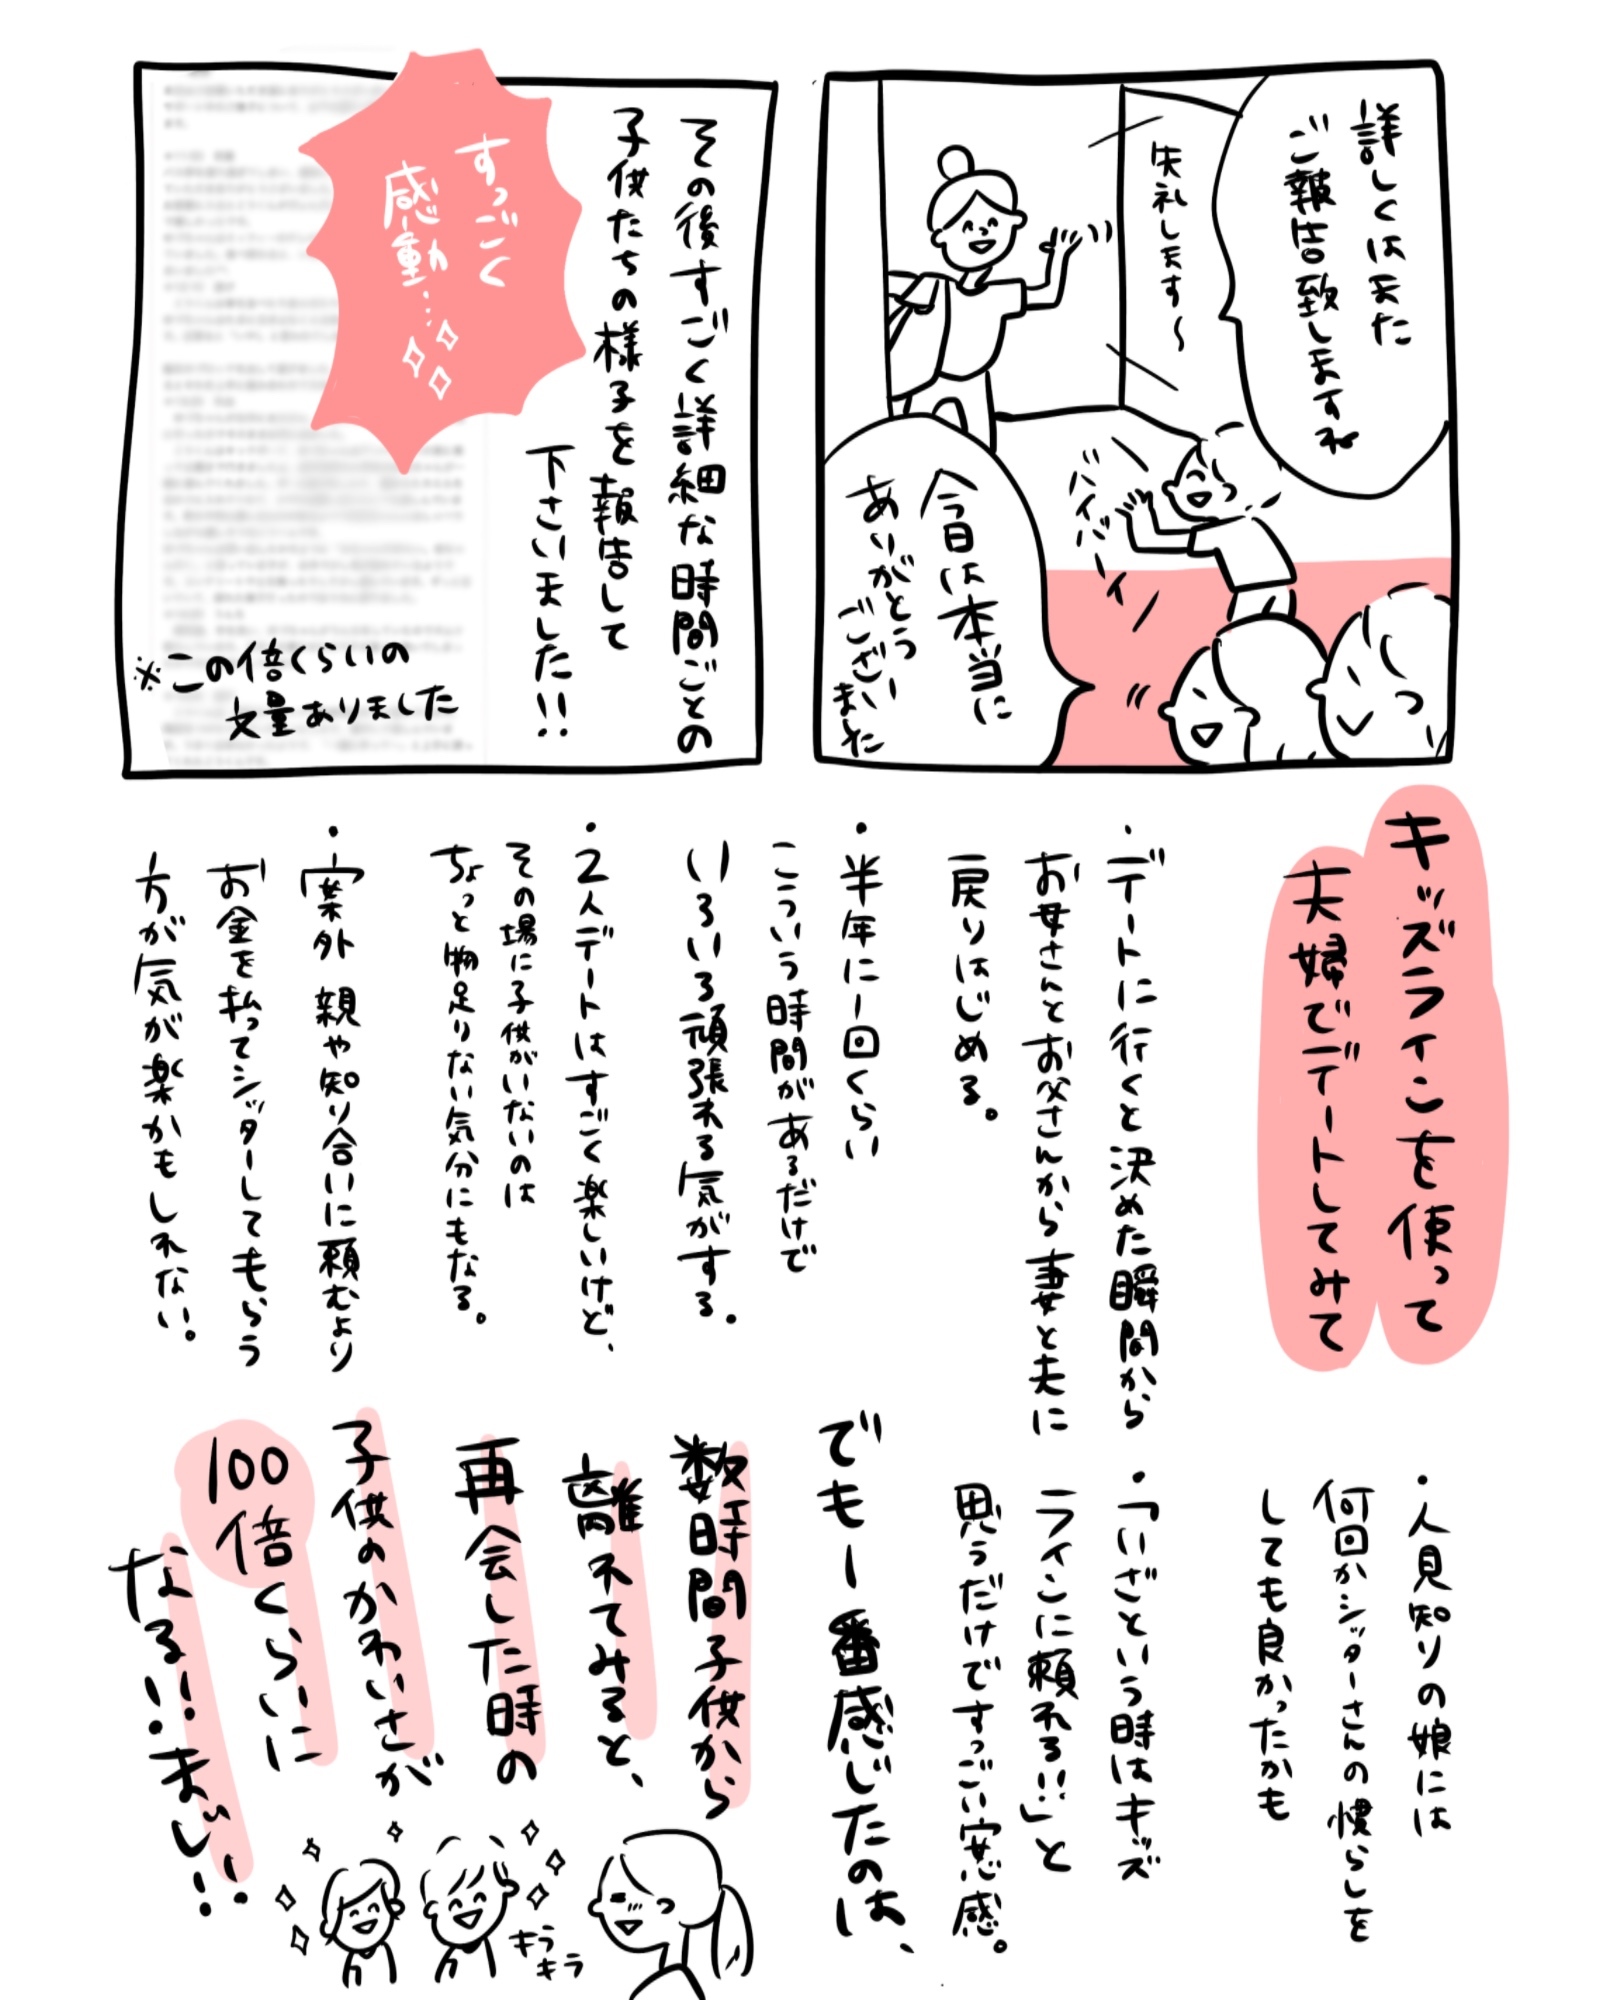 詳しくはまた
ご報告致しますね
失礼します〜
バイバーイ
今日は本当に
ありがとうー
ございました
その後すごく詳細な時間ごとの
子供たちの様子を報告して
下さいました!!
すっごく
感動…
※この倍くらいの
文量ありました
キッズラインを使って
夫婦でデートしてみて
・デートに行くと決めた瞬間から
お母さんとお父さんから妻と夫に
戻りはじめる。
・半年に1回くらい
こういう時間があるだけで
いろいろ頑張れる気がする。
・2人デートはすごく楽しいけど、
その場に子供がいないのは
ちょっと物足りない気分にもなる。
・案外親や知り合いに頼むより
お金を払ってシッターしてもらう
方が気が楽かもしれない。
・人見知りの娘には
何回かシッターさんの慣らしを
しても良かったかも
・「いざという時はキズ
ラインに頼れる!!」と
思うだけですっごい安心感。
でも一番感じたのは、
数時間子供から
離れてみると、
再会した時の
子供のかわいさが
100倍くらいに
なる!!まじ!!
キラキラ